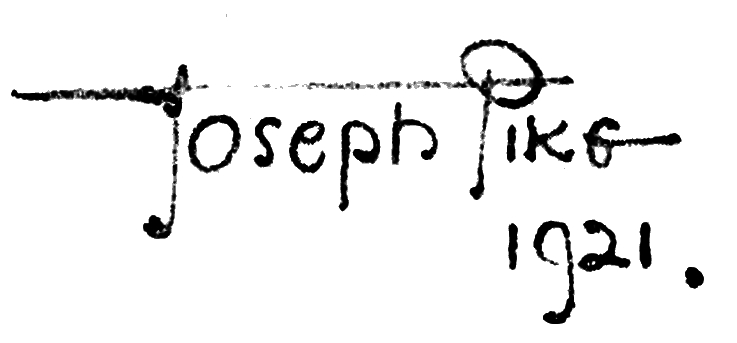 Joseph Pike
1921.